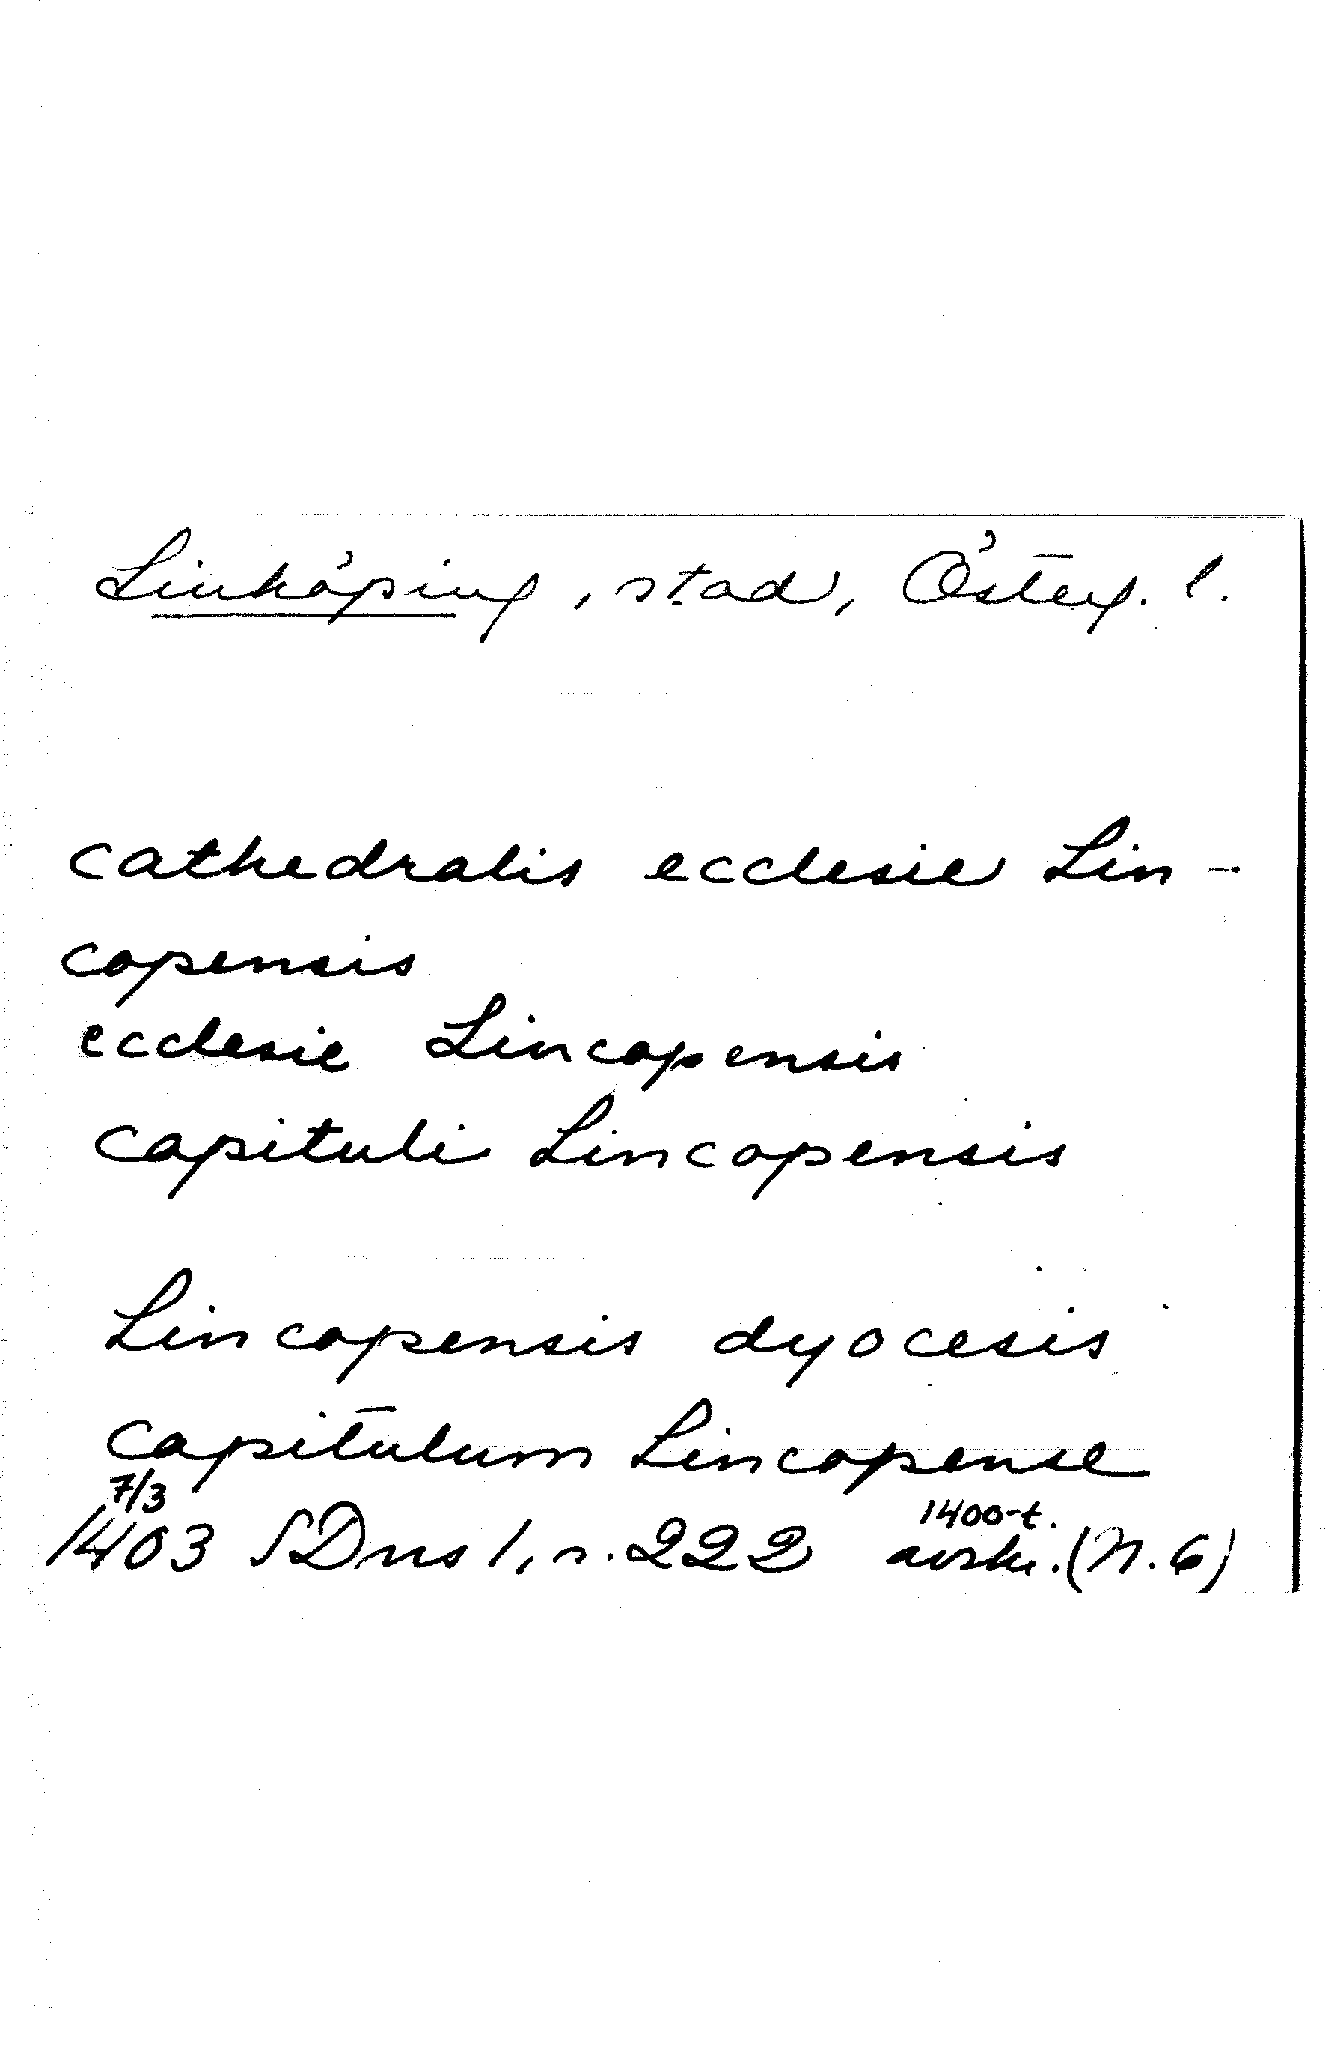 Linköping, stad, Österg. l.
cathedralis ecclesie Lin-
copensis
ecclesie Lincopensis
capituli Lincopensis
Lincopensis dyocesis
capitulum Lincopense
7/3 1400-t.
1403 SDns 1, n. 222 avskr. (N. 6)